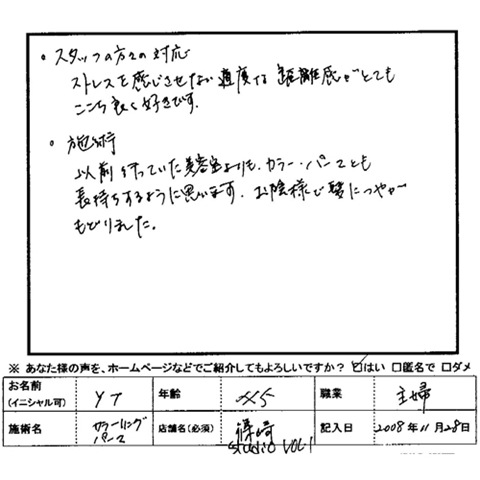 ・スタッフの方々の対応
ストレスを感じさせない適度な距離感がとても
ここち良く好きです.
・施術
以前行っていた美容室よりも、カラー・パーマとも
長持ちするように思います. お陰様で髪につやが
もどりました.
※ あなた様の声を、ホームページなどでご紹介してもよろしいですか？ ☑はい □匿名で □ダメ
お名前(イニシャル可) YT 年齢 45 職業 主婦
施術名 カラーリング パーマ 店舗名(必須) 篠崎 studio VOL1 記入日 2008年11月28日